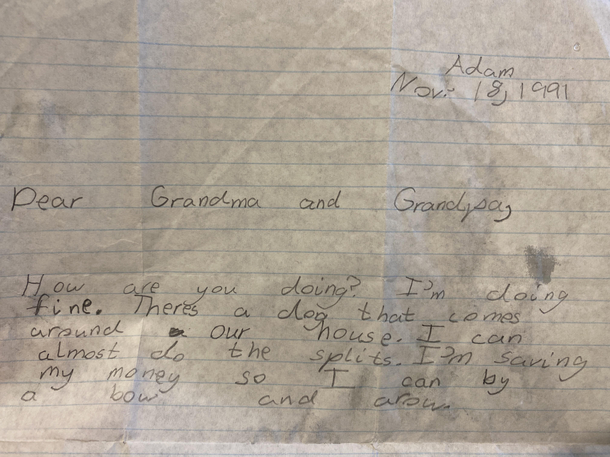 Adam
Nov. 18, 1991
Dear Grandma and Grandpa,
How are you doing? I'm doing
fine. Theres a dog that comes
around our house. I can
almost do the splits. I'm saving
my money so I can by
a bow and arow.